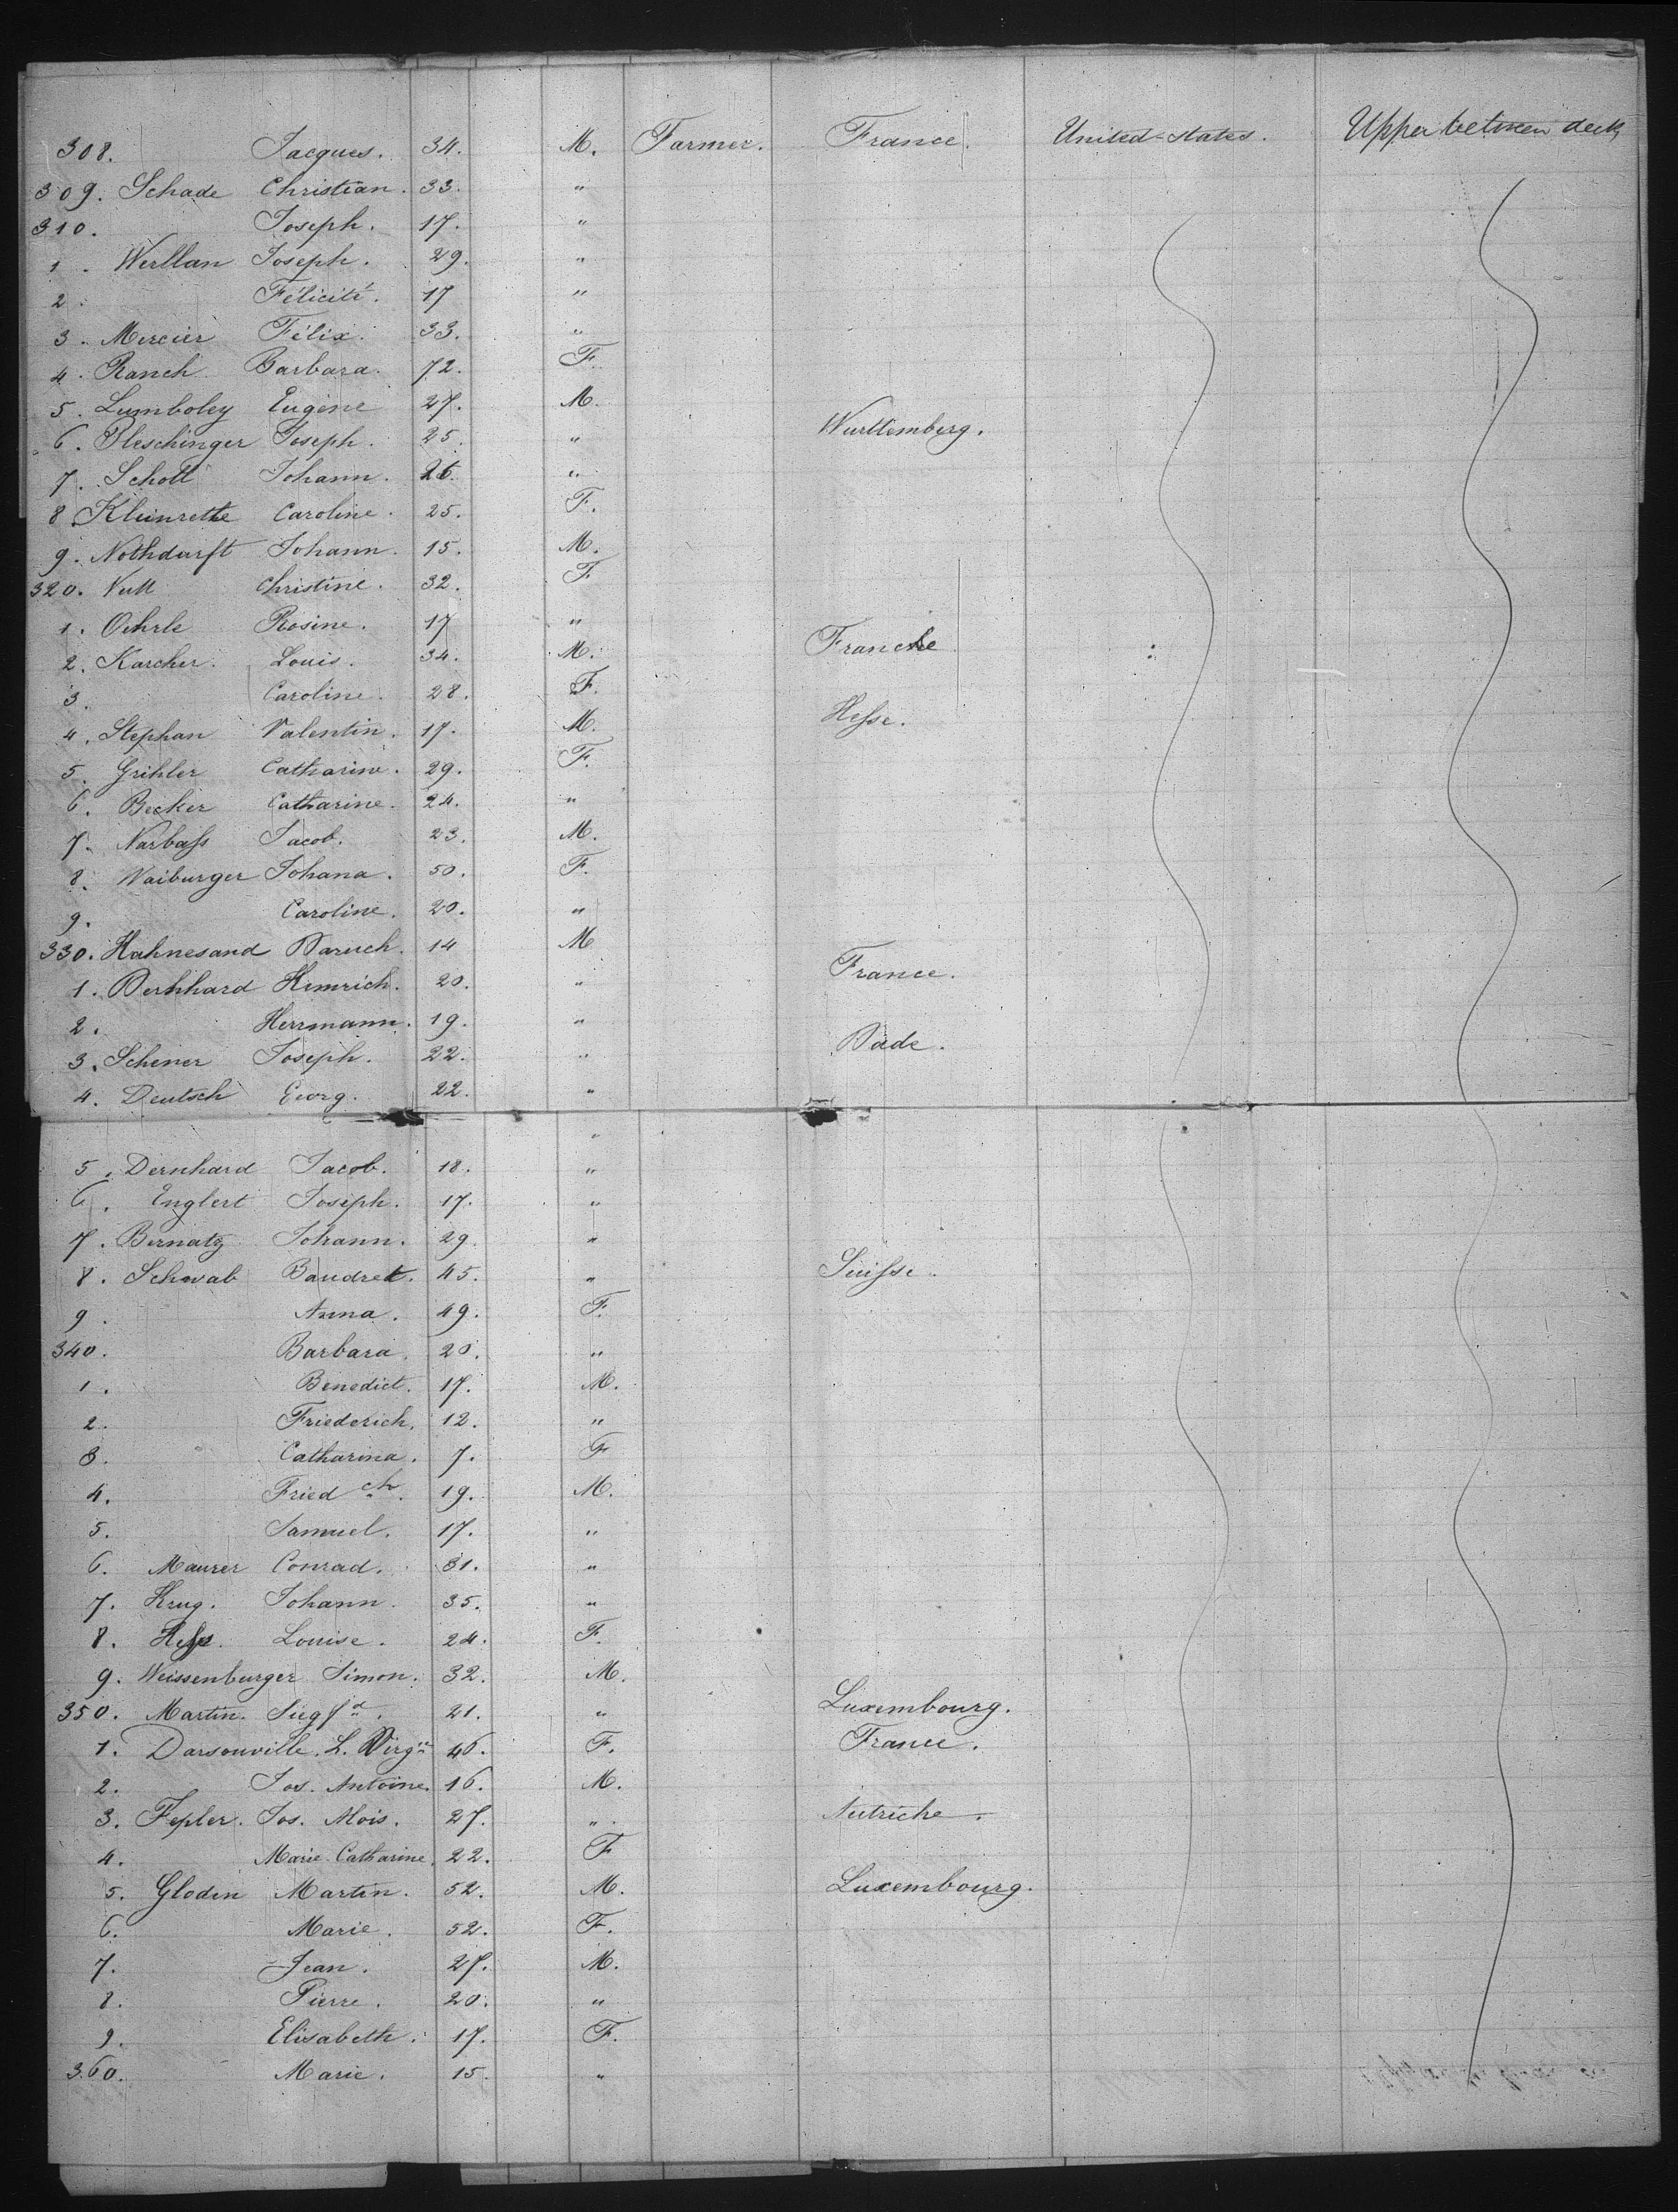 308. Jacques. 34. M. Farmer. France. United-States. Upper between deck
309. Schade Christian. 33. "
310. Joseph. 17. "
1. Werllan Joseph. 29. "
2. Félicité. 17 "
3. Mercier Félix. 33. "
4. Ranch Barbara. 72. F.
5. Lumboley Eugène 27. M.
6. Pleschinger Joseph. 25. " Wurttemberg.
7. Schott Johann. 26. "
8. Kleinrette Caroline. 25. F.
9. Nothdurft Johann. 15. M.
320. Christine. 32. F
1. Oehrle Rosine. 17 "
2. Karcher. Louis. 34. M. France
3. Caroline. 28. F.
4. Stephan Valentin. 17. M. Hesse.
5. Grihler Catharine. 29. F.
6. Becker Catharine. 24. "
7. Narbass Jacob. 23. M.
8. Waiburger Johana. 50. F.
9. Caroline. 20. "
330. Hahnesand Baruch. 14 M
1. Bernhard Heinrich. 20. " France.
2. Herrmann. 19. "
3. Schener Joseph. 22. " Bade.
4. Deutsch Georg. 22. "
5. Dernhard Jacob. 18. "
6. Englert Joseph. 17. "
7. Bernatz Johann. 29. "
8. Schwab Baudret. 45. " Suisse.
9. Anna. 49. F.
340. Barbara. 20. "
1. Benedict. 17. M.
2. Friederich. 12. "
3. Catharina. 7. F
4. Friedch. 19. M.
5. Samuel. 17. "
6. Maurer Conrad. 31. "
7. Krug. Johann. 35. "
8. Hess. Louise. 24. F.
9. Weissenburger Simon. 32. M.
350. Martin. Siegfd. 21. " Luxembourg.
1. Darsonville. L. Virgie 46. F. France.
2. Jos. Antoine. 16. M.
3. Fepler. Jos. Alois. 27. " Autriche.
4. Marie Catharine. 22. F
5. Gloden Martin. 52. M. Luxembourg.
6. Marie. 52. F.
7. Jean. 27. M.
8. Pierre. 20. "
9. Elisabeth. 17. F.
360. Marie. 15. "